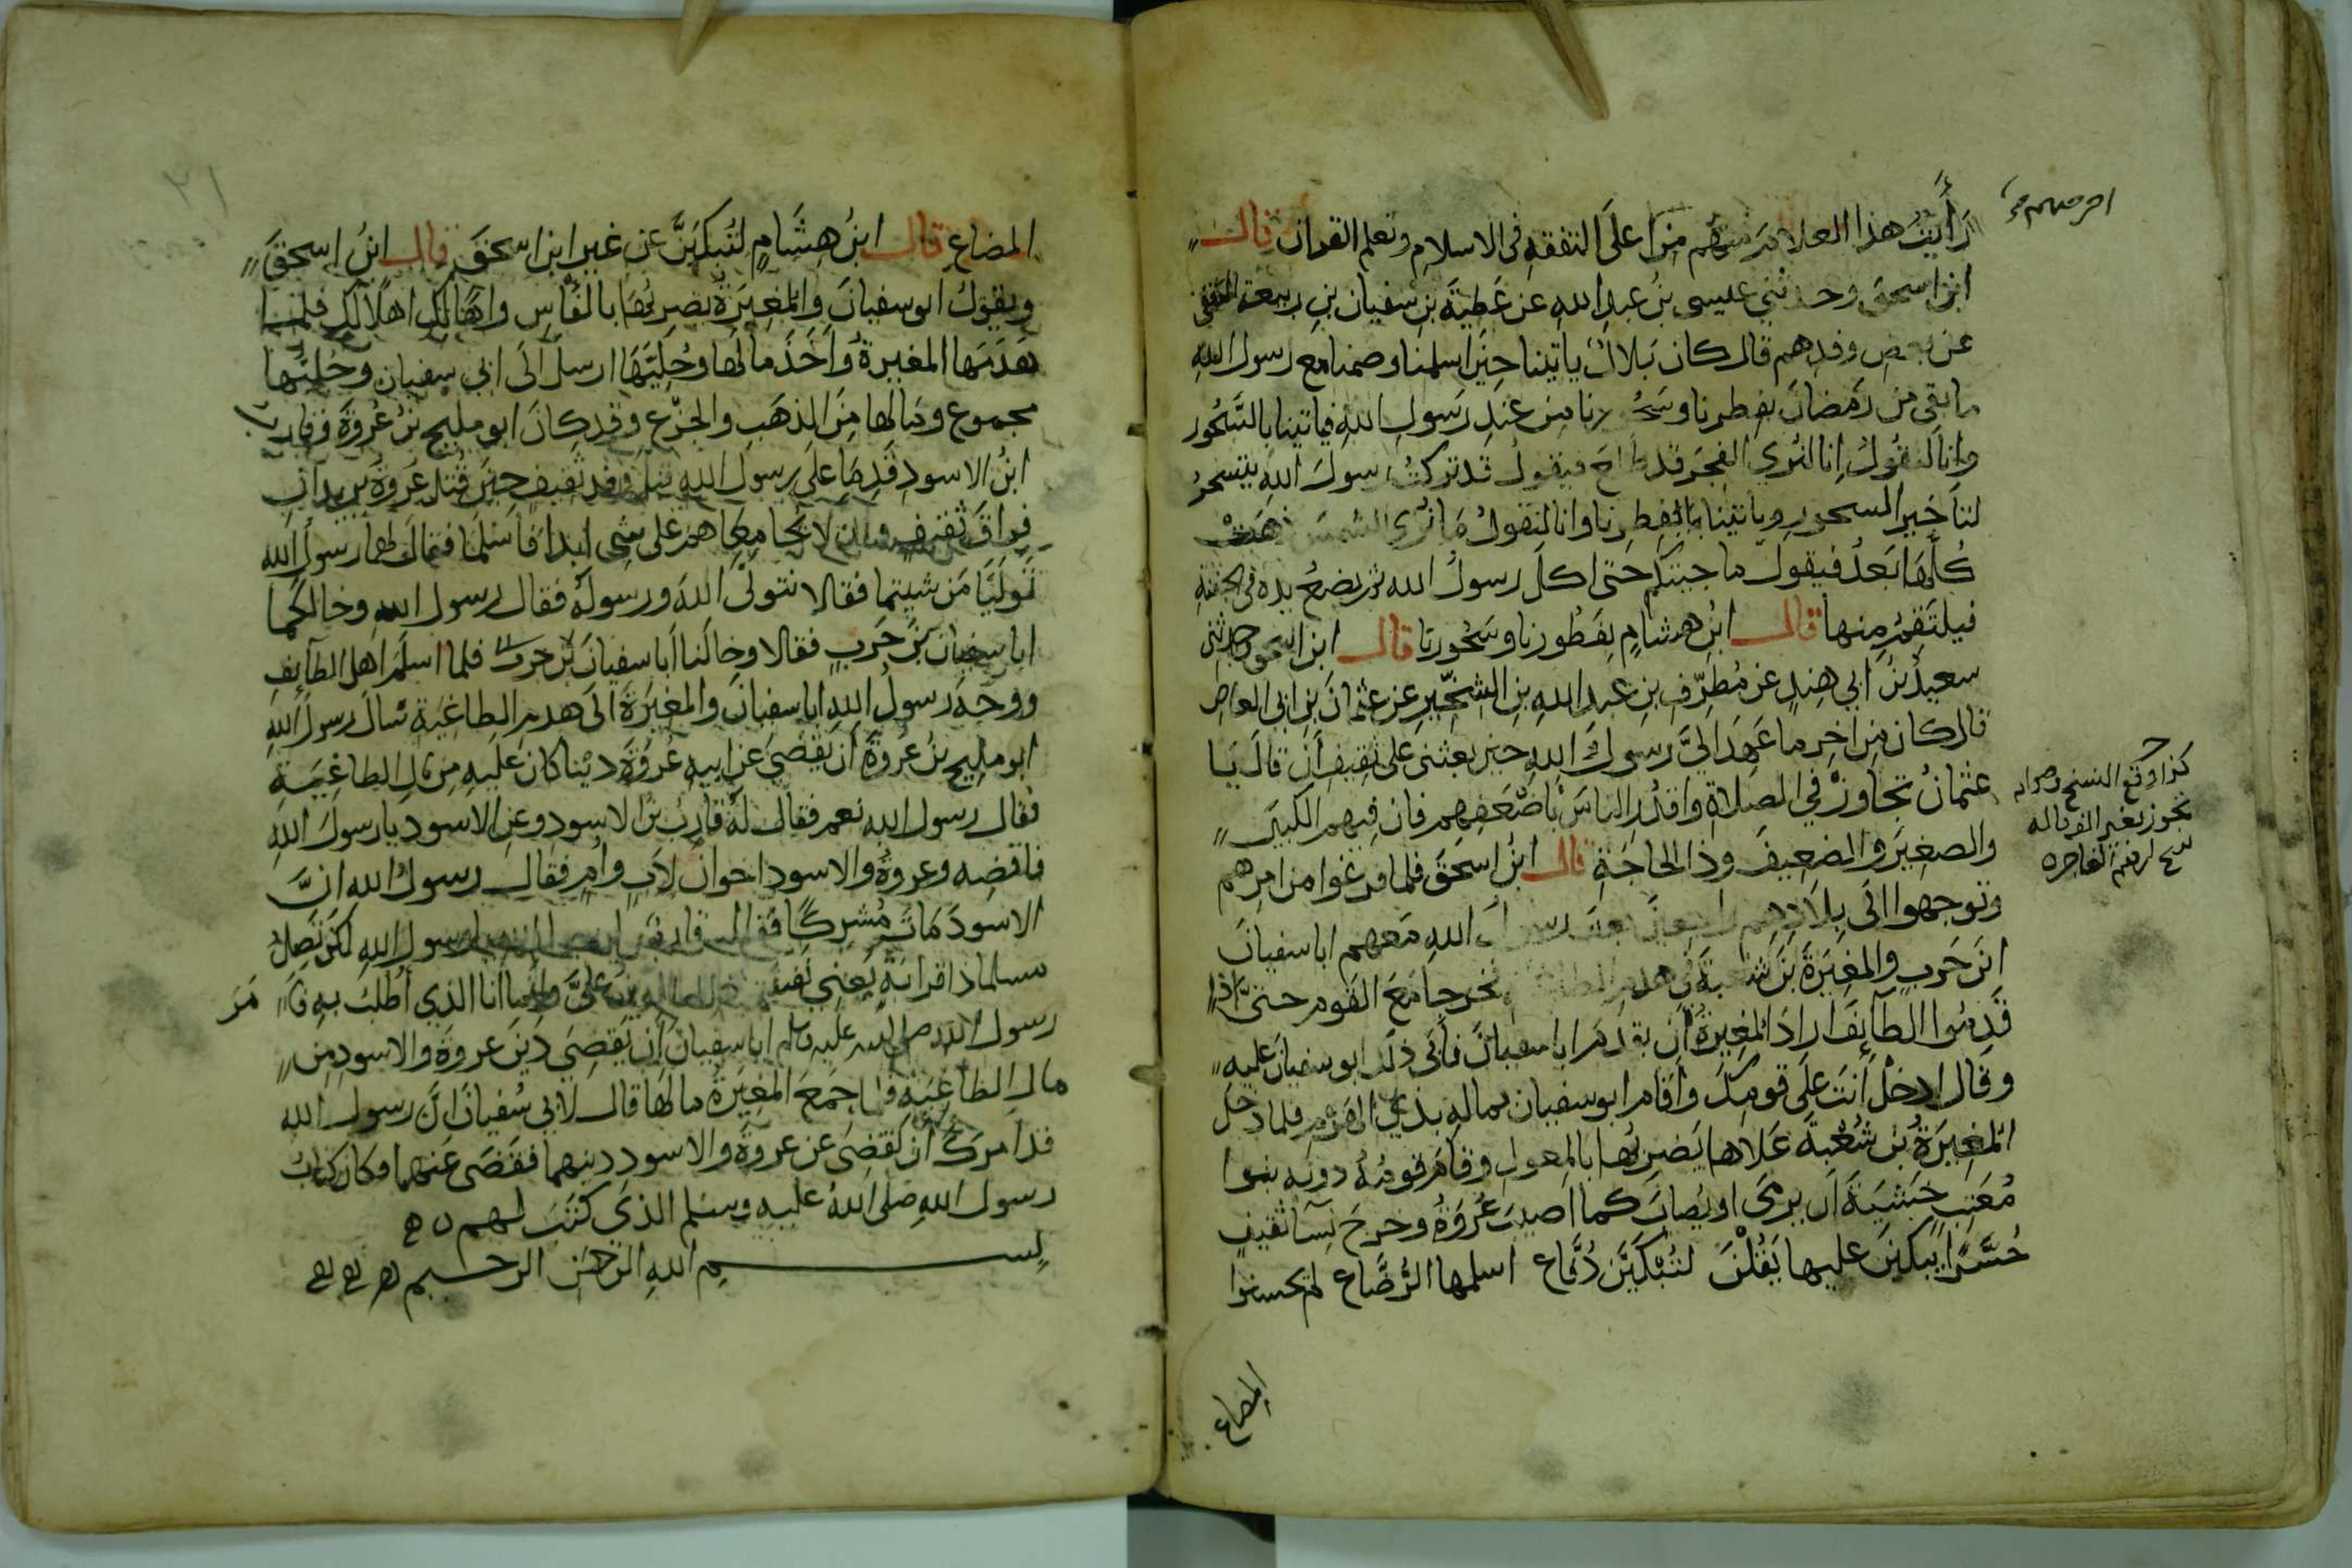 رَأيتُ هذا الغلام منهم من احرصهم على التفقه في الاسلام وتعلم القران قال
ابن اسحق وحدثني عيسى بنُ عبدِ اللهِ عن عَطيةَ بنِ سفيان بنِ ربيعة الثقفي
عن بعض وفدِهم قال كان بَلالٌ ياتينا حِينَ اسلمنا وصمنا مع رسول اللهِ
ما بقي من رَمَضانَ بفطرنا وسَحُورنا من عندِ رَسولِ اللهِ فياتينا بالسَّحُور
وانا لنقولُ انا لنرى الفجرَ قد طلع فيقولُ قد تركتُ رسولَ اللهِ يتسحرُ
لتاخير السحور وياتينا بفِطرنا وانا لنقولُ مَا نُرى الشمسَ ذهَبَتْ
كُلُّهَا بَعدُ فيقول ما جيتكم حتى اكلَ رسولُ الله ثم يضعُ يده في الجفنة
فيلتَقِمُ منها قال ابنُ هشامٍ بفَطُورنا وسَحُورنا قال ابن اسحق وحدثني
سعيدُ بنُ ابي هندٍ عن مُطرِّفِ بنِ عبدِ اللهِ بنِ الشِّخِّيرِ عن عثمانَ بنِ ابي العاصِ
قال كان من اخِرِ ما عَهِدَ اليَّ رسولُ اللهِ حين بعثني على ثقيفٍ اَن قالَ يَا
عثمانُ تجاوزْ في الصلاةِ واقدُرِ الناسَ باَضْعَفِهم فان فِيهم الكبيرَ
والصغِيرَ والضعِيفَ وذا الحاجَةِ قال ابنُ اسحَقَ فلما فرغوا من امرِهم
وتوجهوا الَى بِلادِهم راجعين بعثَ رسولُ اللهِ مَعهم ابا سفيانَ
ابنَ حَربٍ والمغِيرَةَ بنَ شعبةَ في هدم الطاغية فخرجا مَعَ القَوم حتى اذا
قَدِمُوا الطآئِفَ ارادَ المُغِيرةُ اَن يقدمَ ابا سفيانَ فاَبَى ذلك ابو سفيانَ عليه
وقال ادخُلْ اَنتَ علَى قومِكَ واَقَام ابو سفيان بمالِهِ بذي الهَرْمِ فلما دَخلَ
المغِيرَةُ بن شُعْبةَ عَلاها يَضربُها بالمِعولِ وقامَ قومُهُ دونَه بنوا
مُعَتبٍ خَشيَةَ اَن يرمَى او يُصابَ كما اصيبَ عُروَةُ وخرجَ نسآ ثقيفٍ
حُسَّرًا يَبكِينَ عليها يَقُلْنَ لتُبْكَيَنَّ دُفَّاع اسلمها الرُّضَّاع لم يحسنوا
المصاع
كذا وقع النسخ وصوابه
تجوز بغير الف
المِصَاعِ قال ابنُ هِشَامٍ لتُبكَيَنَّ عن غيرِ ابن اسحقَ قال ابنُ اسحقَ
ويقولُ ابو سفيانَ والمُغِيرَةُ يضرِبُها بالفَاسِ واهًا لكِ اهلًا لكِ فلما
هَدَمَها المغيرةُ واَخَذَ مالَها وحُلِيَّهَا ارسلَ الَى ابي سفيان وحُلِيُّها
مجموع ومالها مِنَ الذهَبِ والجَزْع وقد كانَ ابو مليحِ بنُ عُروَةَ وقارب
ابنُ الاسودِ قَدِمَا على رسول اللهِ قبل وفد ثقيفٍ حِينَ قُتل عُروَةَ يريدانِ
فِراقَ ثقيفٍ وان لا يُجامِعاهم على شيءٍ ابدًا فاَسْلَمَا فقال لهما رسولُ اللهِ
تَولَّيَا مَن شيتما فقالا نتولَّى اللهَ ورسولَهُ فقال رسول اللهِ وخالَكُما
ابا سفيان بنَ حَربٍ فقالا وخالَنا اَبا سفيانَ بنَ حَربٍ فلما اسلَمَ اهلُ الطآئِفِ
ووجهَ رسولُ اللهِ ابا سفيانَ والمغيرَةَ الَى هدمِ الطاغِيَةِ سالَ رسولَ اللهِ
ابو مليحِ بنُ عُروَةَ اَن يَقضيَ عن ابيهِ عُروَةَ دَينا كانَ علَيهِ من مَالِ الطاغِيَةِ
فقال رسول اللهِ نعم فقال لهُ قارِبُ بنُ الاسودِ وعن الاسودِ يا رسولَ اللهِ
فاقضِه وعروةُ والاسودُ اخوانِ لاَبٍ واُمٍ فقال رسولُ الله انَّ
الاسودَ مَاتَ مُشرِكًا فقال قارب لرسول اللهِ لكن تَصِلُ
مسلما ذا قرابةٍ يَعني نفسه انما الدين عليَّ وانما انا الذي اُطلَبُ به فاَمَرَ
رسول الله صلى الله عليه وسلم ابا سفيانَ اَن يَقضِيَ دَينَ عروةَ والاسودِ من
مالِ الطاغيَةِ فلما جمَعَ المغِيرَةُ مالَها قال لابي سُفيانَ انَّ رسول الله
قد اَمركَ اَن تَقضِيَ عن عروةَ والاسود دينهما فقَضَى عنهما وكان كتابُ
رسول اللهِ صلى اللهُ عليهِ وسلم الذي كَتَبَ لهم
بسم اللهِ الرحمَن الرحيم